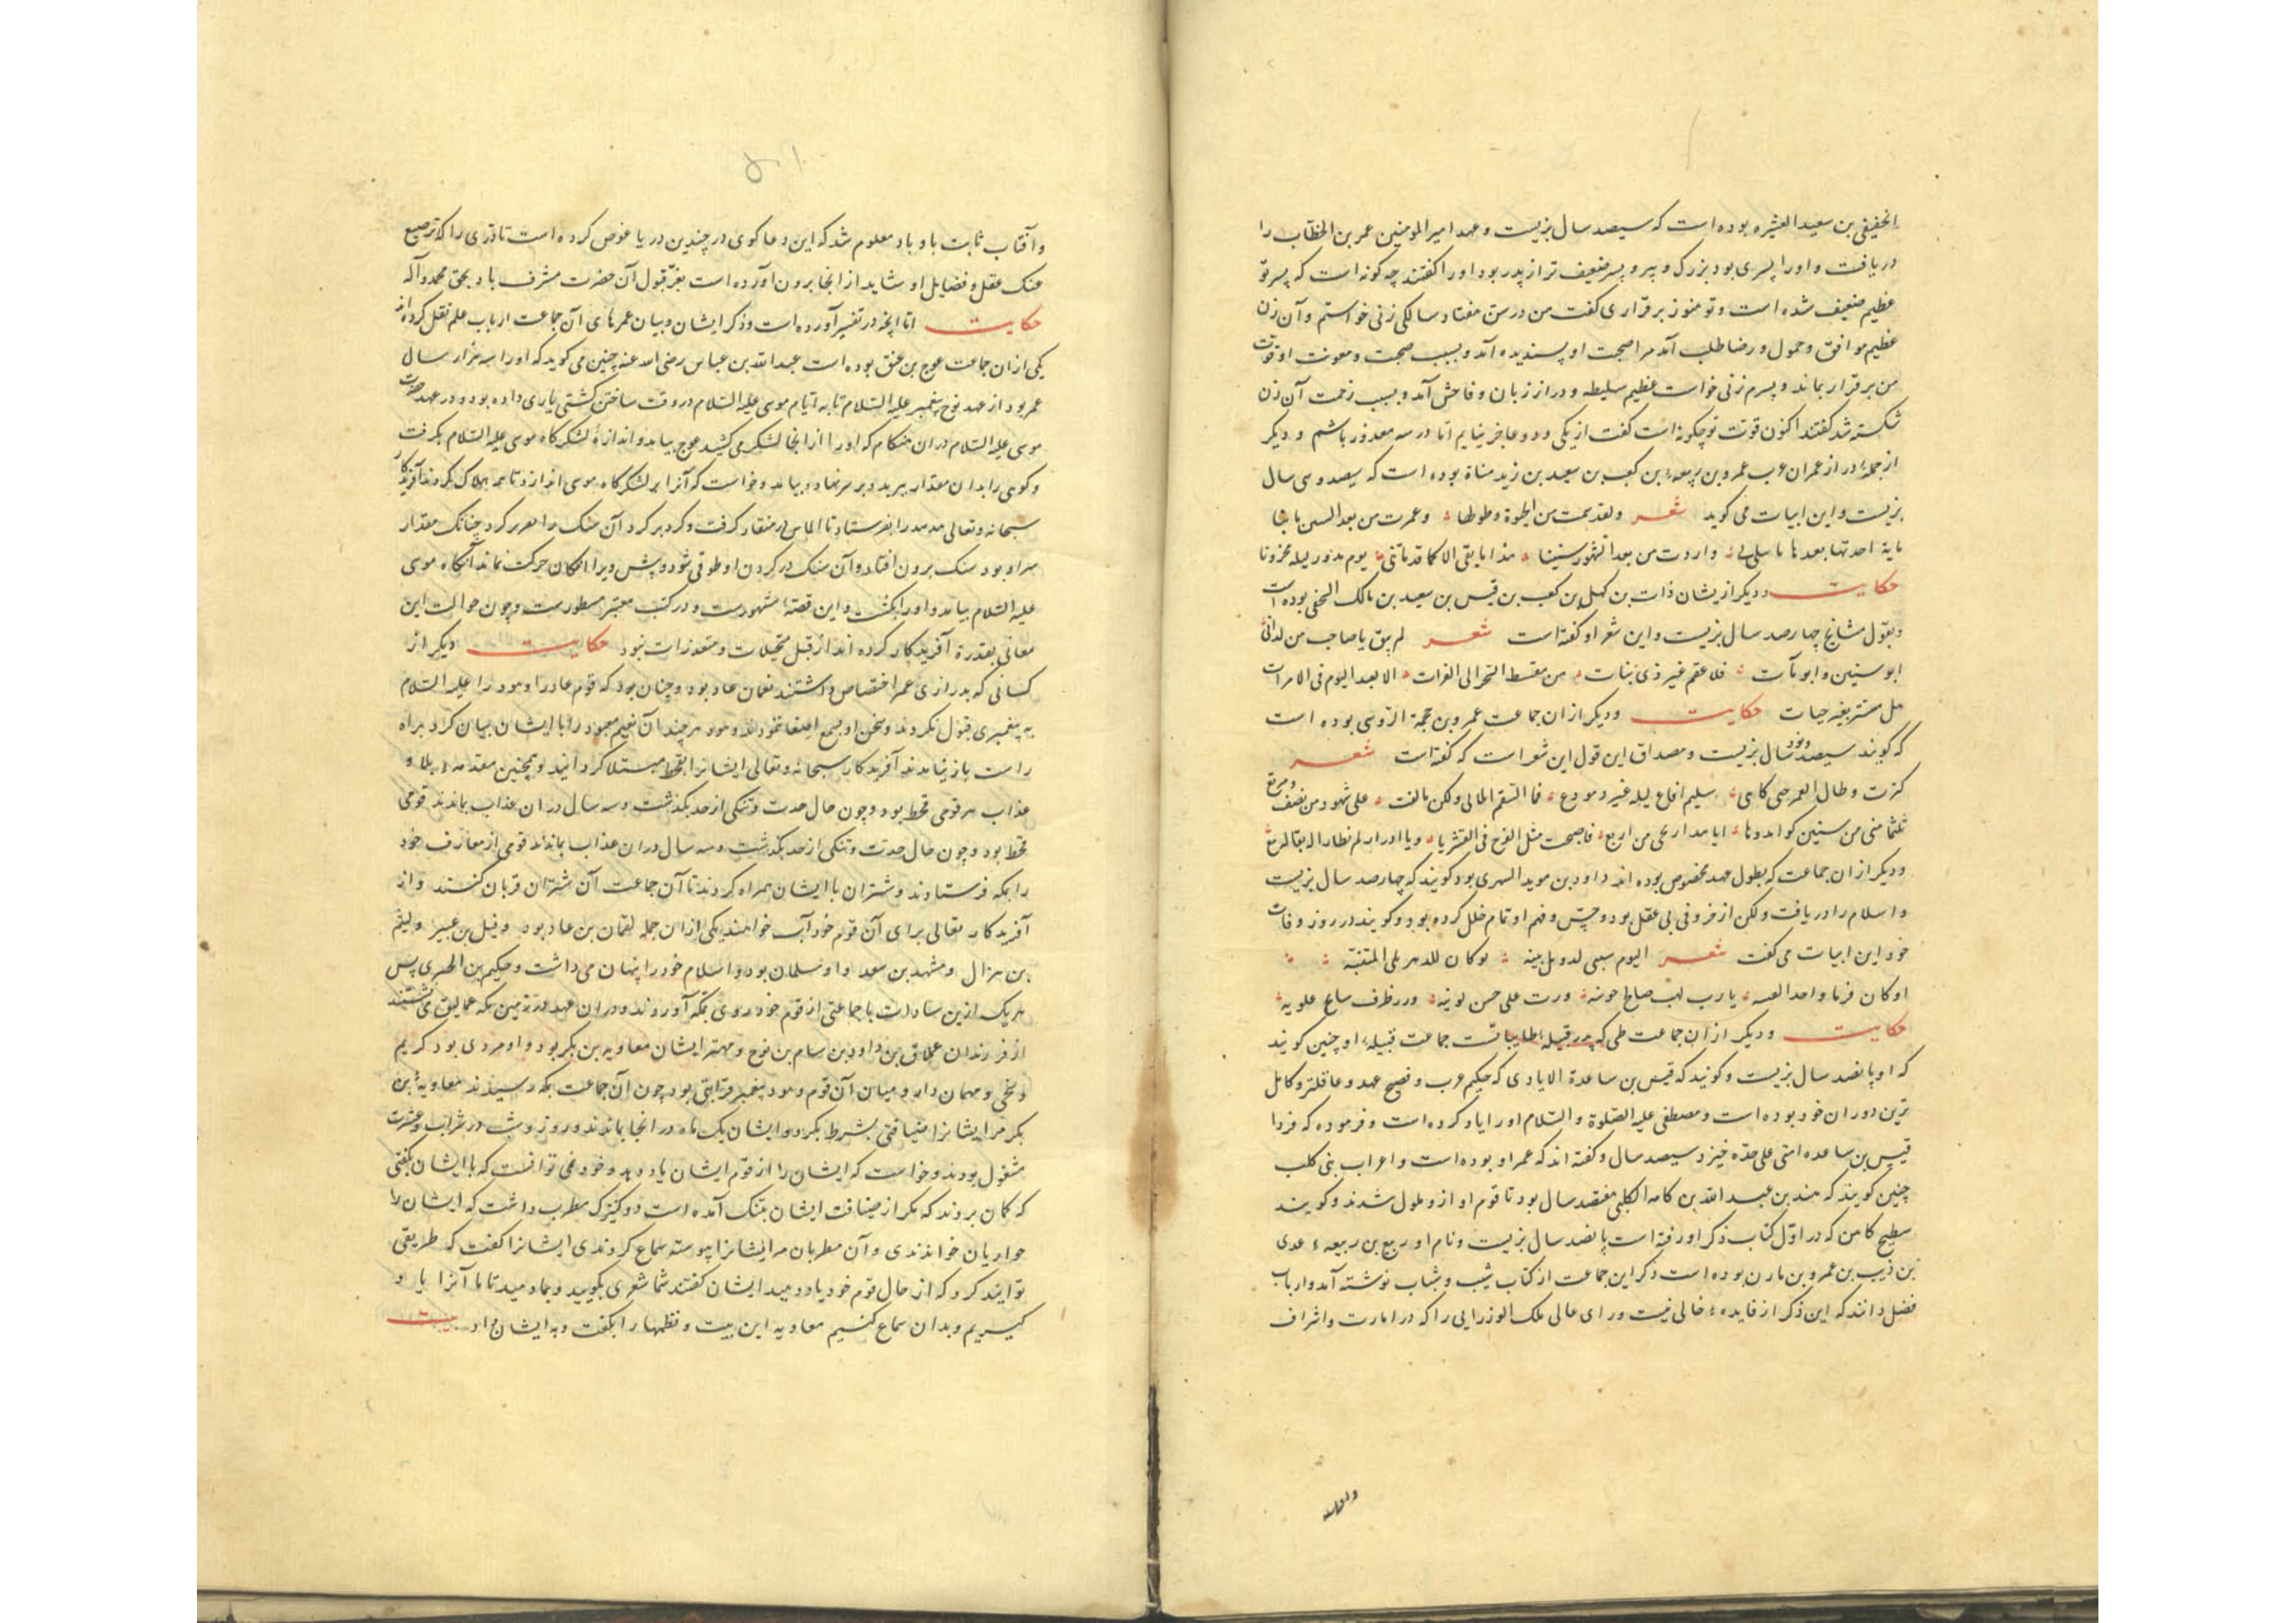 الحنیفی بن سعید العشیره بوده است که سیصد سال بزیست و عهد امیر المومنین عمر بن الخطاب را
دریافت و او را پسری بود بزرک و پیر و پسر ضعیف تر از پدر بود او را کفتند چه کونه است که پسر تو
عظیم ضعیف شده است و تو هنوز برقراری کفت من در سن هفتاد سالکی زنی خواستم و آن زن
عظیم موافق و حمول و رضا طلب آمد مرا صحبت او پسندیده آمد و بسبب صحبت و معونت او قوت
من برقرار بماند و پسرم زنی خواست عظیم سلیطه و دراز زبان و فاحش آمد و بسبب زحمت آن زن
شکسته شد کفتند اکنون قوت تو چکونه است کفت از یکی و دو عاجز نیایم اما در سه معذور باشم و دیکر
از جمله دراز عمران عرب عمرو بن ربیعه بن کعب بن سعید بن زید مناة بوده است که سیصد و سی سال
بزیست و این ابیات می کوید شعر ولقد سمت من الحیوة وطولها وعمرت من بعد السنین
حکایت و دیکر از یشان ذات بن کهل بن کعب بن قیس بن سعید بن مالک النخفی بوده است
و بقول مشایخ چهارصد سال بزیست و این شعر او کفته است شعر لم یبق یا صاحب من لداتی
ابو سنین و ابو بنات فلا عقم غیر ذی بنات من مقسط الشحر الی الفرات الا یعد الیوم فی الاموات
حکایت و دیکر از ان جماعت عمرو بن حممة الدوسی بوده است
که کویند سیصد و نود سال بزیست و مصداق این قول این شعر است که کفته است شعر
کبرت و طال العمر حتی کانی سلیم افاع لیله غیر مودع فما السقم ابلانی ولکن تتابعت علی شهود من نصف و مربع
و دیکر از ان جماعت که بطول عهد مخصوص بوده اند داود بن موید النهدی بود کویند که چهارصد سال بزیست
و اسلام را دریافت ولکن از خرفی بی عقل بود و حس و فهم او تمام خلل کرده بود و کویند در روز وفات
خود این ابیات می کفت شعر الیوم
حکایت و دیکر از ان جماعت طی که پدر قبیله جماعت قبیله او چنین کویند
که او پانصد سال بزیست و کویند که قیس بن ساعدة الایادی که حکیم عرب و فصیح عهد و عاقلتر و کامل
ترین دوران خود بوده است و مصطفی علیه الصلوة و السلام او را یاد کرده است و فرموده که فردا
قیس بن ساعده امتی علی حده خیزد سیصد سال و کفته اند که عمر او بوده است و اعراب بنی کلب
چنین کویند که هند بن عبد الله بن کامه الکلبی هفتصد سال بود تا قوم او از و ملول شدند و کویند
سطیح کاهن که در اول کتاب ذکر او رفته است پانصد سال بزیست و نام او ربیع بن ربیعه عدی
بن ذیب بن عمرو بن مازن بوده است ذکر این جماعت از کتاب شیب و شباب نوشته آمد و ارباب
فضل دانند که این ذکر از فایده خالی نیست و رای عالی ملک الوزرایی را که در امارت و اشراف
و آفتاب ثابت باد باد معلوم شد که این دعا کوی در چندین دریا غوص کرده است تا دری را که ترصیع
عقل و فضایل او شاید از انجا برون آورده است بعز قبول آن حضرت مشرف باد بحق محمد وآله
حکایت اما انچه در تفسیر آورده است و ذکر ایشان و بیان عمرهای آن جماعت ارباب علم نقل کرده اند
یکی از ان جماعت عوج بن عنق بوده است عبد الله بن عباس رضی الله عنه چنین می کوید که او را سه هزار سال
عمر بود از عهد نوح پیغمبر علیه السلام تا به ایام موسی علیه السلام در وقت ساختن کشتی یاری داده بود و در عهد حضرت
موسی علیه السلام دران هنکام که او را از انجا لشکر می کشید عوج بیامد و اندازه لشکرکاه موسی علیه السلام بکرفت
و کوهی را بدان مقدار ببرید و بر سر نهاد و بیامد و خواست که آنرا بر لشکرکاه موسی اندازد تا همه هلاک کردند آفریدکار
سبحانه و تعالی هدهد را بفرستاد تا الماس در منقار کرفت و کرد بر کرد آن سنک را کرد چنانک مقدار
سر او بود سنک برون افتاد و آن سنک در کردن او طوقی شد و پیش ویرا امکان حرکت نماند آنکاه موسی
علیه السلام بیامد و او را بکشت و این قصه مشهورست و در کتب معتبر مسطورست و چون حوالت این
معانی بقدرة آفریدکار کرده اند از قبل تخیلات و متعذرات نبود حکایت دیکر از
کسانی که بدرازی عمر اختصاص داشتند لقمان عاد بود و چنان بود که قوم عاد را و هود را علیه السلام
به پیغمبری قبول نکردند و سخن او بسمع اصغا ننمودند و هود هر چند آن نعیم معبود را با ایشان بیان کرد براه
راست باز نیامدند آفریدکار سبحانه و تعالی ایشانرا بقحط مبتلا کردانید و همچنین مقدمه بلا و
عذاب هر قومی قحط بود و چون حال حدت و تنکی از حد بکذشت و سه سال دران عذاب بماندند قومی
قحط بود و چون حال حدت و تنکی از حد بکذشت و سه سال دران عذاب بماندند قومی از معارف خود
را بمکه فرستادند و شتران با ایشان همراه کردند تا آن جماعت آن شتران قربان کنند و از
آفریدکار تعالی برای آن قوم خود آب خواهند یکی از ان جمله لقمان بن عاد بود و قیل بن عییر و لقیم
بن هزال و مشهد بن سعد و او مسلمان بود و اسلام خود را پنهان می داشت و حکیم بن الخیبری پس
هر یک ازین سادات با جماعتی از قوم خود روی بمکه آوردند و دران عهد در زمین مکه عمالیق می نشستند
از فرزندان عملاق بن داود بن سام بن نوح و مهتر ایشان معاویه بن بکر بود و او مردی بود کریم
و سخی و مهمان دار و میان آن قوم و هود پیغمبر قرابتی بود چون آن جماعت بمکه رسیدند معاویه بن
بکر مر ایشانرا ضیافتی بشرط بکرد و ایشان یک ماه در انجا بماندند و روز و شب در شراب و عشرت
مشغول بودند و خواست که ایشان را از قوم ایشان یاد دهد و خود نمی توانست که با ایشان بکفتی
که کمان بردند که مکر از ضیافت ایشان بتنک آمده است دو کنیزک مطرب داشت که ایشان را
جواریان خواندندی و آن مطربان مر ایشانرا پیوسته سماع کردندی ایشانرا کفت که طریقی
توانید کرد که از حال قوم خود یاد دهید ایشان کفتند شما شعری بکویید و بما دهید تا ما آنرا یاد
کیریم و بدان سماع کنیم معاویه این بیت و نظمها را بکفت و به ایشان داد بیت